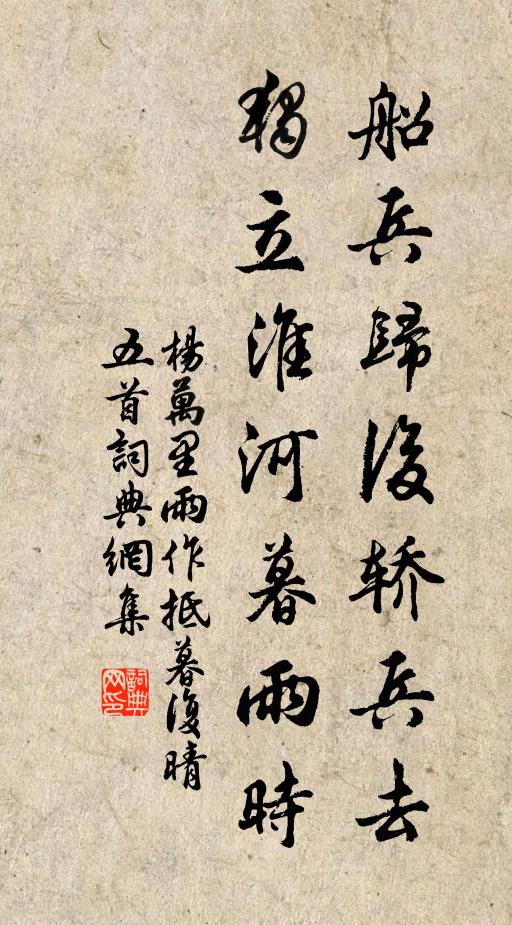 船兵歸後轿兵去
獨立淮河暮雨時
楊萬里雨作抵暮復晴
五首詞典網集
詞典
网印